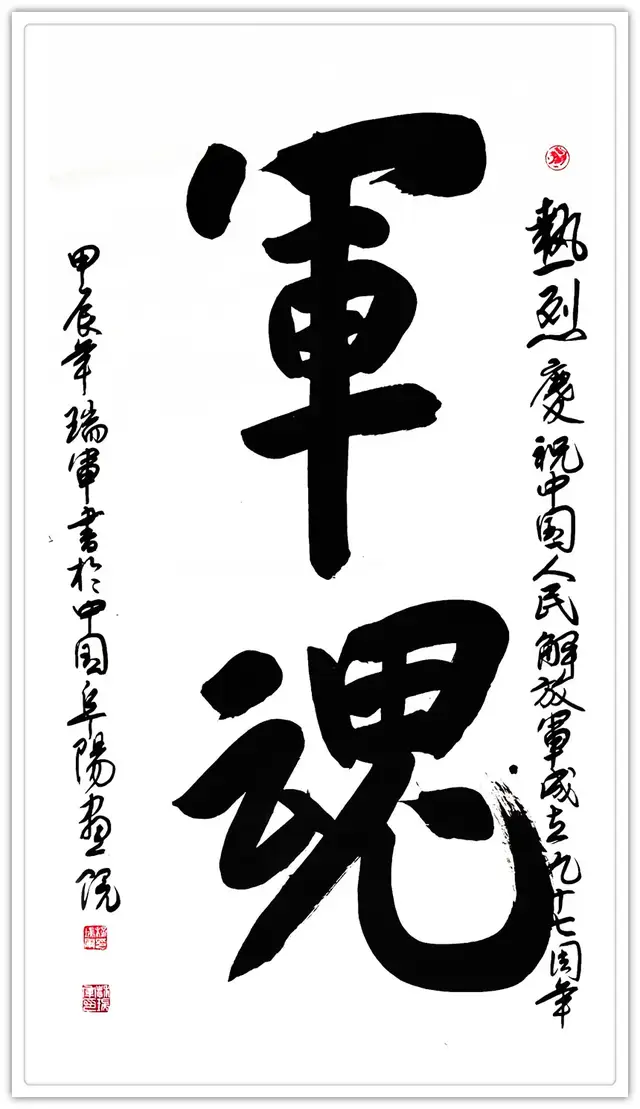 熱烈慶祝中国人民解放軍成立九十七周年
軍魂
甲辰年瑞軍書於中国阜陽画院